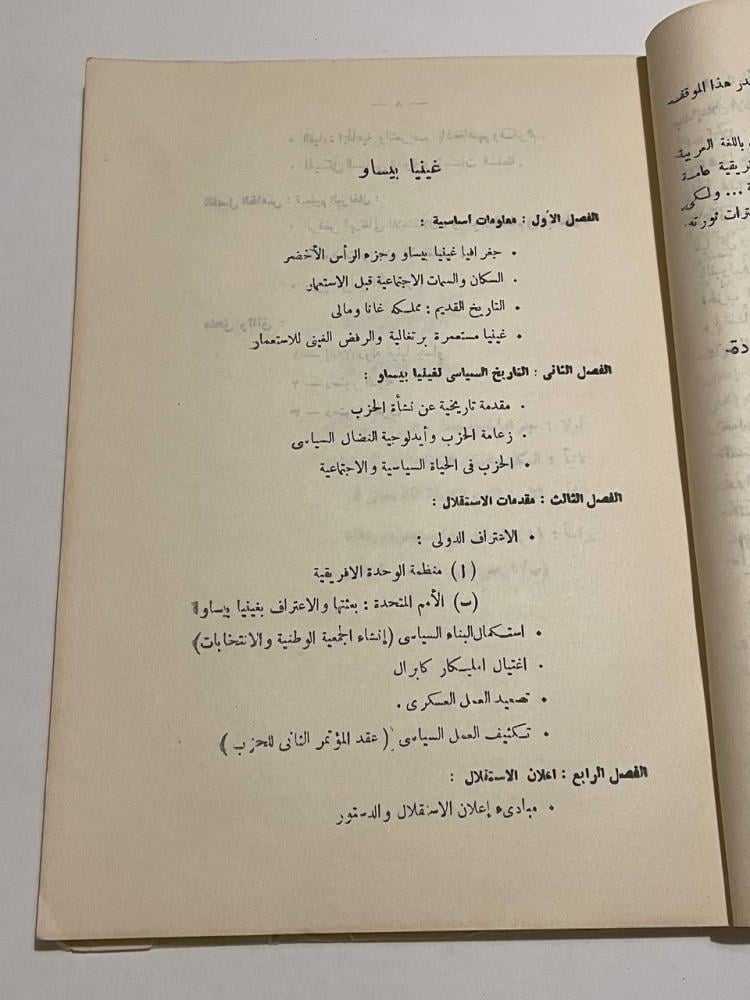 غينيا بيساو
الفصل الأول : معلومات أساسية :
• جغرافيا غينيا بيساو وجزر الرأس الأخضر
• السكان والسمات الاجتماعية قبل الاستعمار
• التاريخ القديم : مملكة غانا ومالى
• غينيا مستعمرة برتغالية والرفض الغينى للاستعمار
الفصل الثانى : التاريخ السياسى لغينيا بيساو :
• مقدمة تاريخية عن نشأة الحزب
• زعامة الحزب وأيدلوجية النضال السياسى
• الحزب فى الحياة السياسية والاجتماعية
الفصل الثالث : مقدمات الاستقلال :
• الاعتراف الدولى :
(أ) منظمة الوحدة الافريقية
(ب) الأمم المتحدة : بعثتها والاعتراف بغينيا بيساو
• استكمال البناء السياسى (إنشاء الجمعية الوطنية والانتخابات)
• اغتيال امليكار كابرال
• تصعيد العمل العسكرى .
• تكثيف العمل السياسى (عقد المؤتمر الثانى للحزب)
الفصل الرابع : اعلان الاستقلال :
• مبادىء إعلان الاستقلال والدستور
هذا الموقف
باللغة العربية
عامة
... ولكى
ثورته .